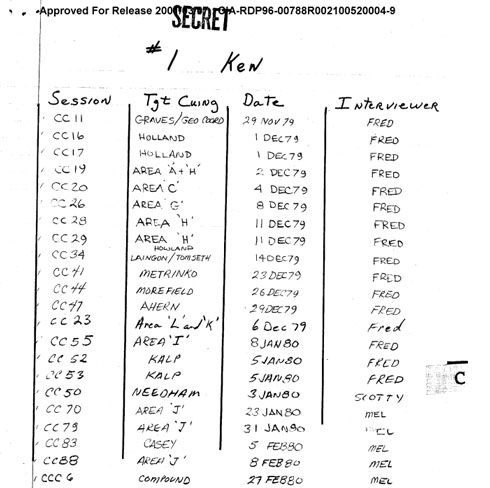 Approved For Release 200 CIA-RDP96-00788R002100520004-9
SECRET
#1 Ken
Session Tgt Cuing Date Interviewer
CC11 GRAVES/GEO COORD 29 NOV 79 FRED
CC16 HOLLAND 1 DEC79 FRED
CC17 HOLLAND 1 DEC79 FRED
CC19 AREA 'A'+'H' 2 DEC79 FRED
CC20 AREA 'C' 4 DEC79 FRED
CC26 AREA 'G' 8 DEC79 FRED
CC28 AREA 'H' 11 DEC79 FRED
CC29 AREA 'H' 11 DEC79 FRED
HOWLAND
CC34 LAINGON/TOMSETH 14DEC79 FRED
CC41 METRINKO 23DEC79 FRED
CC44 MOREFIELD 26DEC79 FRED
CC47 AHERN 29DEC79 FRED
CC23 Area 'L' and 'K' 6 Dec 79 Fred
CC55 AREA 'I' 8JAN80 FRED
CC52 KALP 5JAN80 FRED
CC53 KALP 5JAN80 FRED
CC50 NEEDHAM 3JAN80 SCOTTY
C
CC70 AREA 'J' 23JAN80 MEL
CC79 AREA 'J' 31 JAN80 MEL
CC83 CASEY 5 FEB80 MEL
CC88 AREA 'J' 8 FEB80 MEL
CCC6 COMPOUND 27 FEB80 MEL